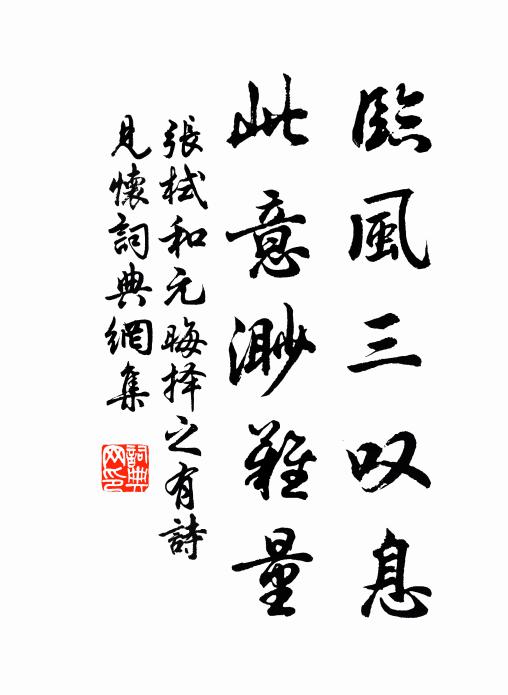 臨風三叹息
此意渺難量
張栻和元晦择之有詩
見懷詞典網集
詞典
网印